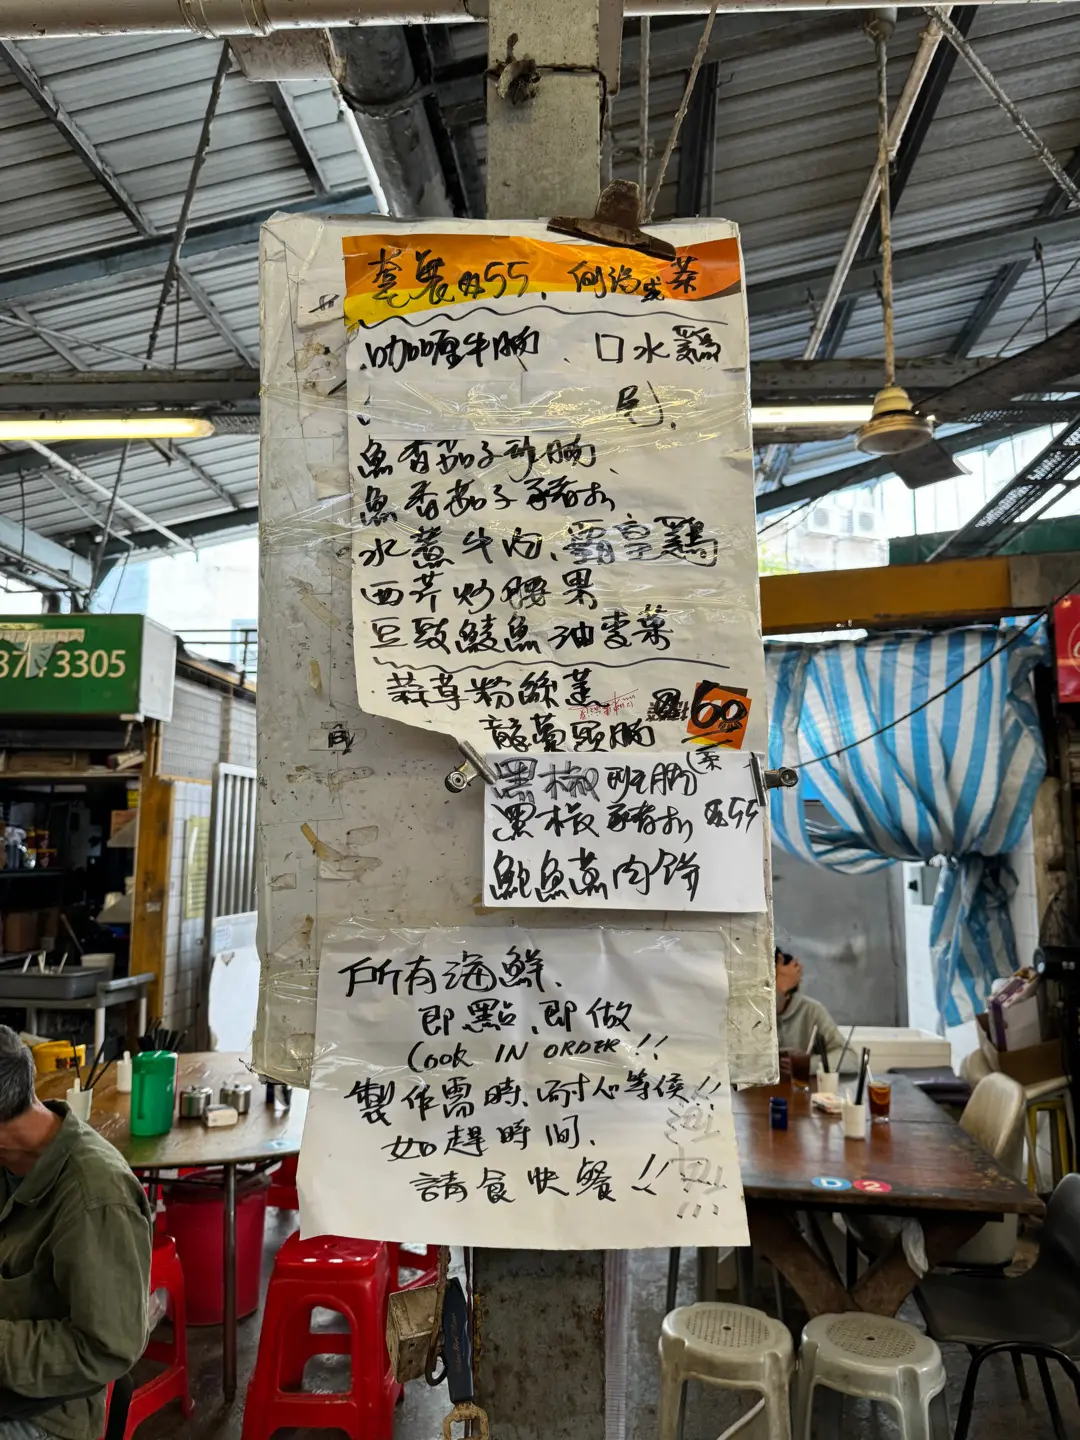 套餐 $55、例湯或茶
咖喱牛腩、口水鷄
魚香茄子班腩、
魚香茄子豬扒
水煮牛肉、霸皇鷄
西芹炒腰果
豆豉鯪魚油麥菜
蒜茸粉絲蒸
龍躉頭腩
60
黑椒班腩
黑椒豬扒 $55
鮑魚蒸肉餅
所有海鮮、
即點、即做
COOK IN ORDER!!
製作需時、耐心等候!!
如趕時间、
請食快餐!!
3305
D 2